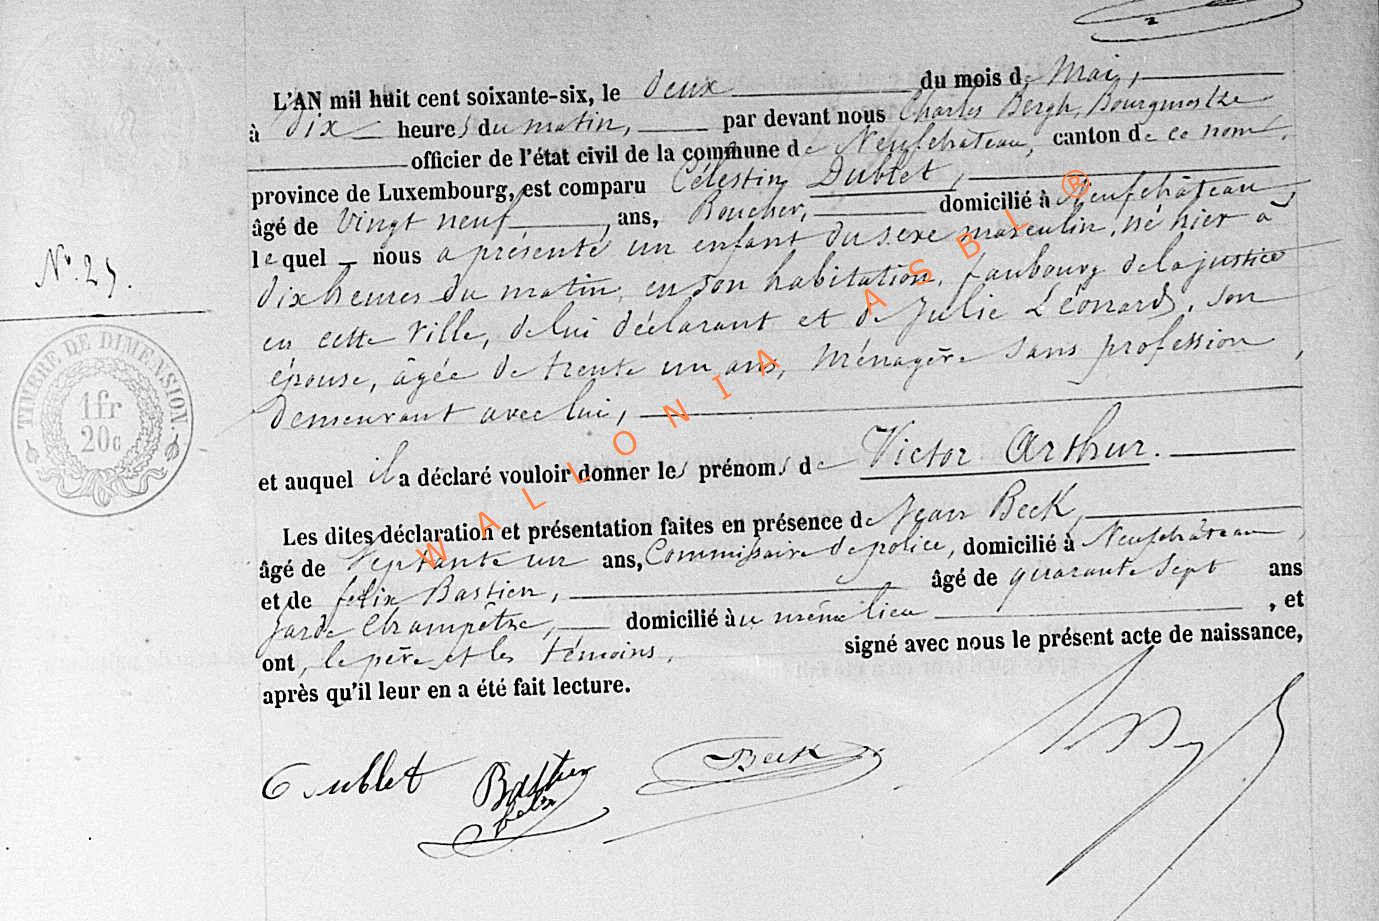 L'AN mil huit cent soixante-six, le deux du mois de Mai,
à dix heures du matin, par devant nous Charles Bergh, Bourgmestre
officier de l'état civil de la commune de Neufchateau, canton de ce nom,
province de Luxembourg, est comparu Célestin Dublet,
âgé de vingt neuf, ans, Boucher, domicilié à Neufchâteau,
lequel nous a présenté un enfant du sexe masculin, né hier à
dix heures du matin, en son habitation, faubourg de la justice
en cette ville, de lui déclarant et de Julie Léonard, son
épouse, âgée de trente un ans, Ménagère sans profession,
demeurant avec lui,
et auquel il a déclaré vouloir donner les prénoms de Victor Arthur.
Les dites déclaration et présentation faites en présence de Jean Beck,
âgé de Septante un ans, Commissaire de police, domicilié à Neufchâteau,
et de felix Bastien, âgé de quarante sept ans
garde Champêtre, domicilié au même lieu, et
ont, le père et les témoins, signé avec nous le présent acte de naissance,
après qu'il leur en a été fait lecture.
N°. 25.
TIMBRE DE DIMENSION.
1 fr
20c
Dublet Bastien Beck
felix
WALLONIA ASBL ®